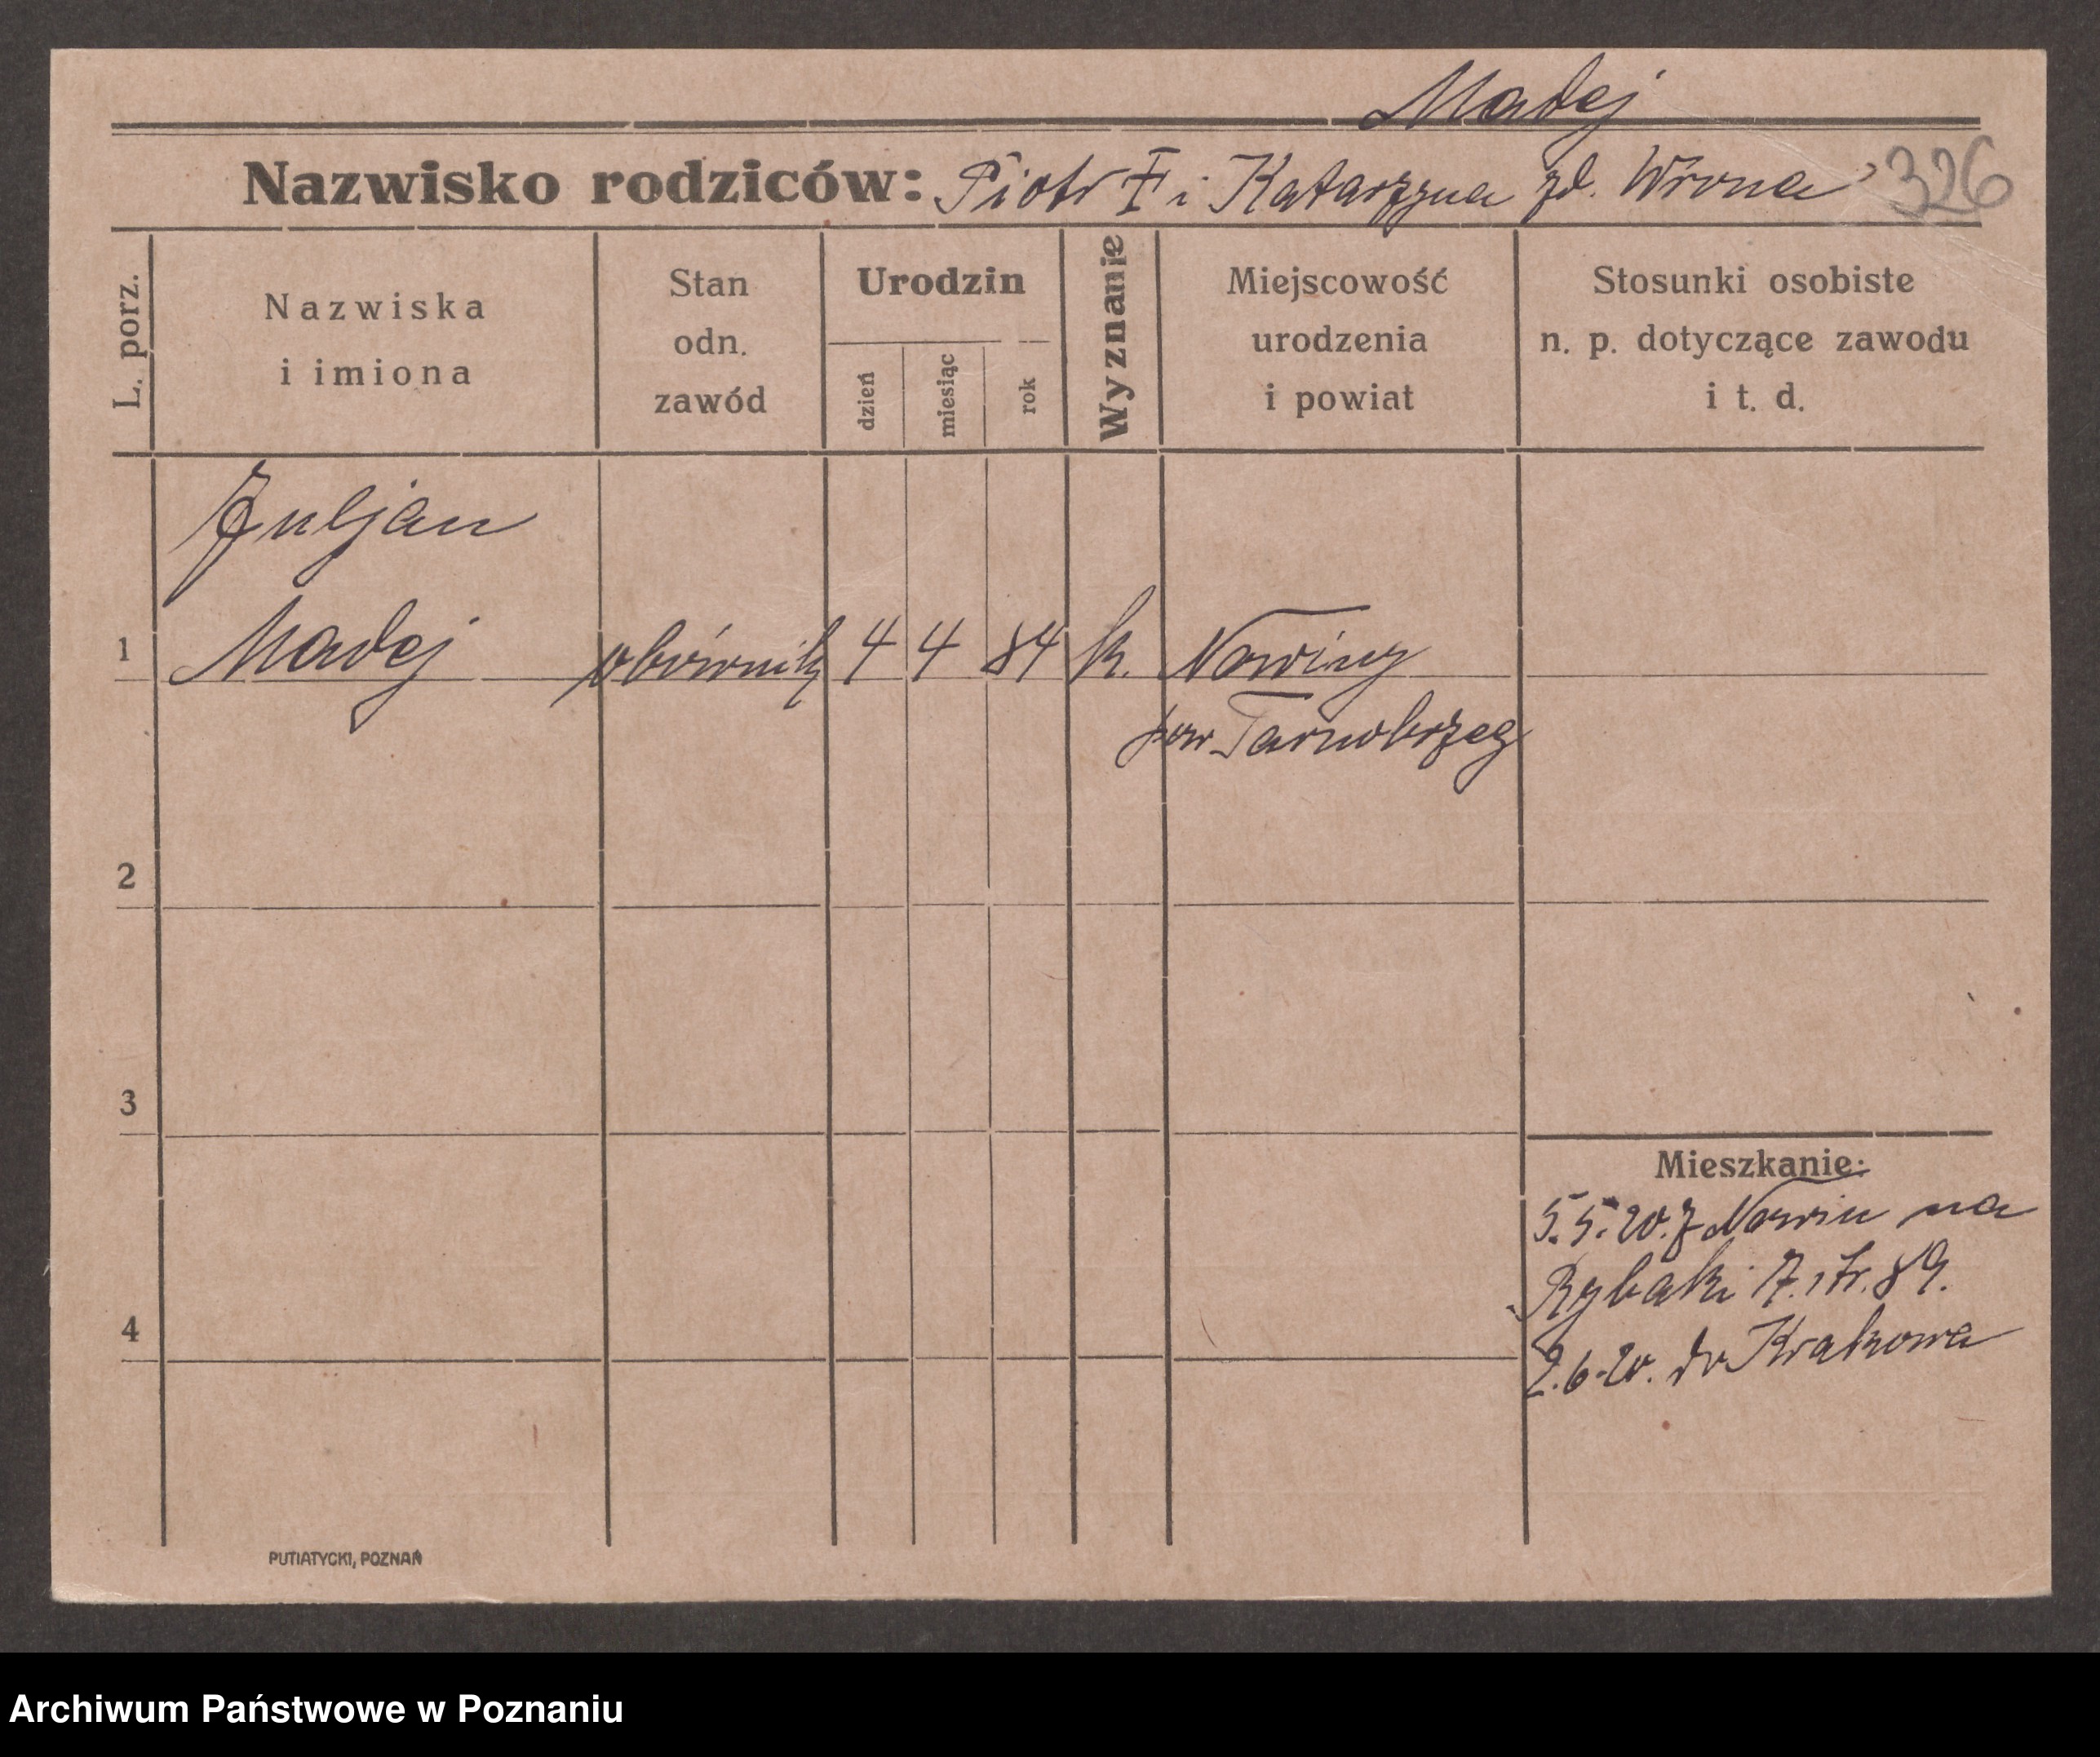 Madej
Nazwisko rodziców: Piotr i Katarzyna zd. Wrona 326
L. porz.
Nazwiska
i imiona
Stan
odn.
zawód
Urodzin
dzień
miesiąc
rok
Wyznanie
Miejscowość
urodzenia
i powiat
Stosunki osobiste
n. p. dotyczące zawodu
i t. d.
Juljan
1 Madej 4 4 84 k. Nowiny
pow Tarnobrzeg
2
3
4
Mieszkanie:
5.5.20. z Nowin na
Rybaki 7. tr. 89.
2.6.20. do Krakowa
PUTIATYCKI, POZNAŃ
Archiwum Państwowe w Poznaniu